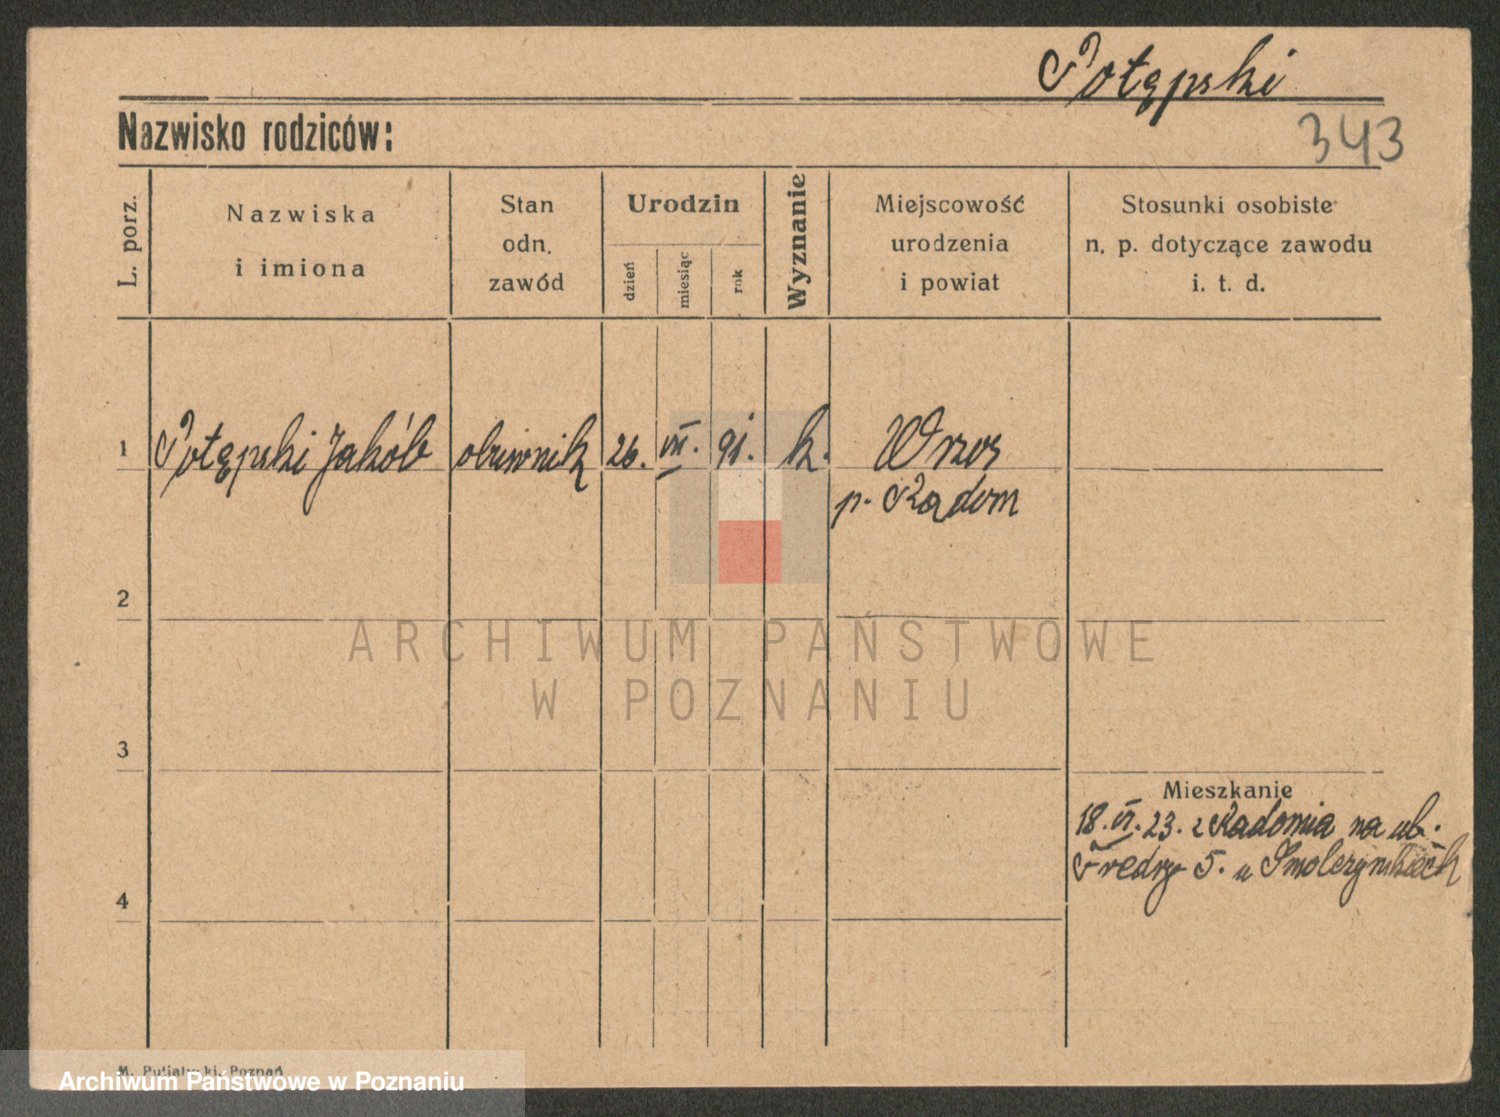 Potępski
Nazwisko rodziców:
343
L. porz.
Nazwiska
i imiona
Stan
odn.
zawód
Urodzin
dzień
miesiąc
rok
Wyznanie
Miejscowość
urodzenia
i powiat
Stosunki osobiste
n. p. dotyczące zawodu
i. t. d.
1 Potępski Jakób 26. VII. 91. k. Wrzos
p. Radom
2
ARCHIWUM PAŃSTWOWE
W POZNANIU
3
Mieszkanie
18. VI. 23. z Radomia na ul.
Fredry 5. u
4
M. Putiatycki, Poznań
Archiwum Państwowe w Poznaniu